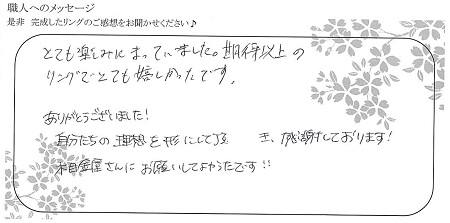 職人へのメッセージ
是非 完成したリングのご感想をお聞かせください♪
とても楽しみにまっていました。期待以上の
リングでとても嬉しかったです。
ありがとうございました!
自分たちの理想を形にして頂き、感謝しております!
杢目金屋さんにお願いしてよかったです!!